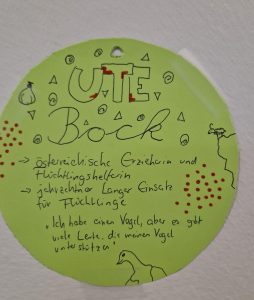 UTE
Bock
→ österreichische Erzieherin und
Flüchtlingshelferin
→ jahrzehnte langer Einsatz
für Flüchtlinge
"Ich habe einen Vogel, aber es gibt
viele Leute, die meinen Vogel
unterstützen"